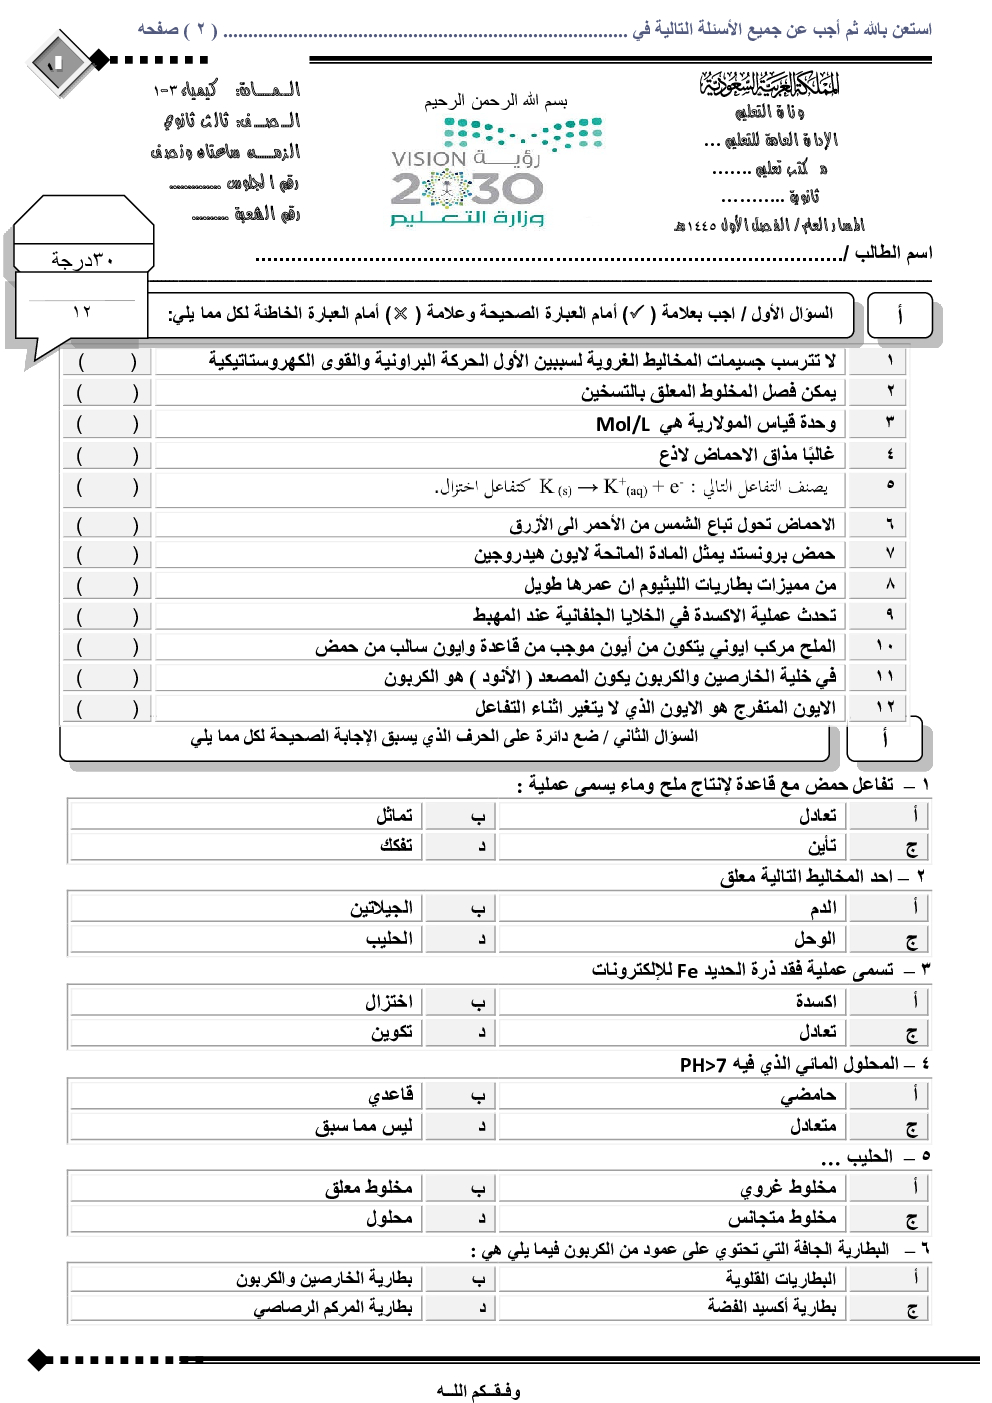 استعن بالله ثم أجب عن جميع الأسئلة التالية في ................................................................................ ( ٢ ) صفحه
المملكة العربية السعودية
وزاة التعليم
الإداة العامة للتعليم ...
م كتب تعليم .......
ثانوية ...........
المسار العام/ الفصل الأول ١٤٤٥هـ
بسم الله الرحمن الرحيم
VISION رؤيــة
2030
وزارة التعـــليم
المـــادة: كيمياء ٣-١
الـصــف: ثالث ثانوي
الزمـــن ساعتان ونصف
رقم الجلوس ............
رقم الشعبة .........
اسم الطالب /........................................................................................................
٣٠درجة
١٢
أ
السؤال الأول / اجب بعلامة ( ✓) أمام العبارة الصحيحة وعلامة ( ✕) أمام العبارة الخاطئة لكل مما يلي:
١ لا تترسب جسيمات المخاليط الغروية لسببين الأول الحركة البراونية والقوى الكهروستاتيكية ( )
٢ يمكن فصل المخلوط المعلق بالتسخين ( )
٣ وحدة قياس المولارية هي Mol/L ( )
٤ غالبًا مذاق الاحماض لاذع ( )
٥ يصنف التفاعل التالي : K (s) → K+(aq) + e- كتفاعل اختزال. ( )
٦ الاحماض تحول تباع الشمس من الأحمر الى الأزرق ( )
٧ حمض برونستد يمثل المادة المانحة لايون هيدروجين ( )
٨ من مميزات بطاريات الليثيوم ان عمرها طويل ( )
٩ تحدث عملية الاكسدة في الخلايا الجلفانية عند المهبط ( )
١٠ الملح مركب ايوني يتكون من أيون موجب من قاعدة وايون سالب من حمض ( )
١١ في خلية الخارصين والكربون يكون المصعد ( الأنود ) هو الكربون ( )
١٢ الايون المتفرج هو الايون الذي لا يتغير اثناء التفاعل ( )
أ
السؤال الثاني / ضع دائرة على الحرف الذي يسبق الإجابة الصحيحة لكل مما يلي
١ – تفاعل حمض مع قاعدة لإنتاج ملح وماء يسمى عملية :
أ تعادل ب تماثل
ج تأين د تفكك
٢ – احد المخاليط التالية معلق
أ الدم ب الجيلاتين
ج الوحل د الحليب
٣ – تسمى عملية فقد ذرة الحديد Fe للإلكترونات
أ اكسدة ب اختزال
ج تعادل د تكوين
٤ – المحلول المائي الذي فيه PH>7
أ حامضي ب قاعدي
ج متعادل د ليس مما سبق
٥ – الحليب ...
أ مخلوط غروي ب مخلوط معلق
ج مخلوط متجانس د محلول
٦ – البطارية الجافة التي تحتوي على عمود من الكربون فيما يلي هي :
أ البطاريات القلوية ب بطارية الخارصين والكربون
ج بطارية أكسيد الفضة د بطارية المركم الرصاصي
وفـقــكم اللــه